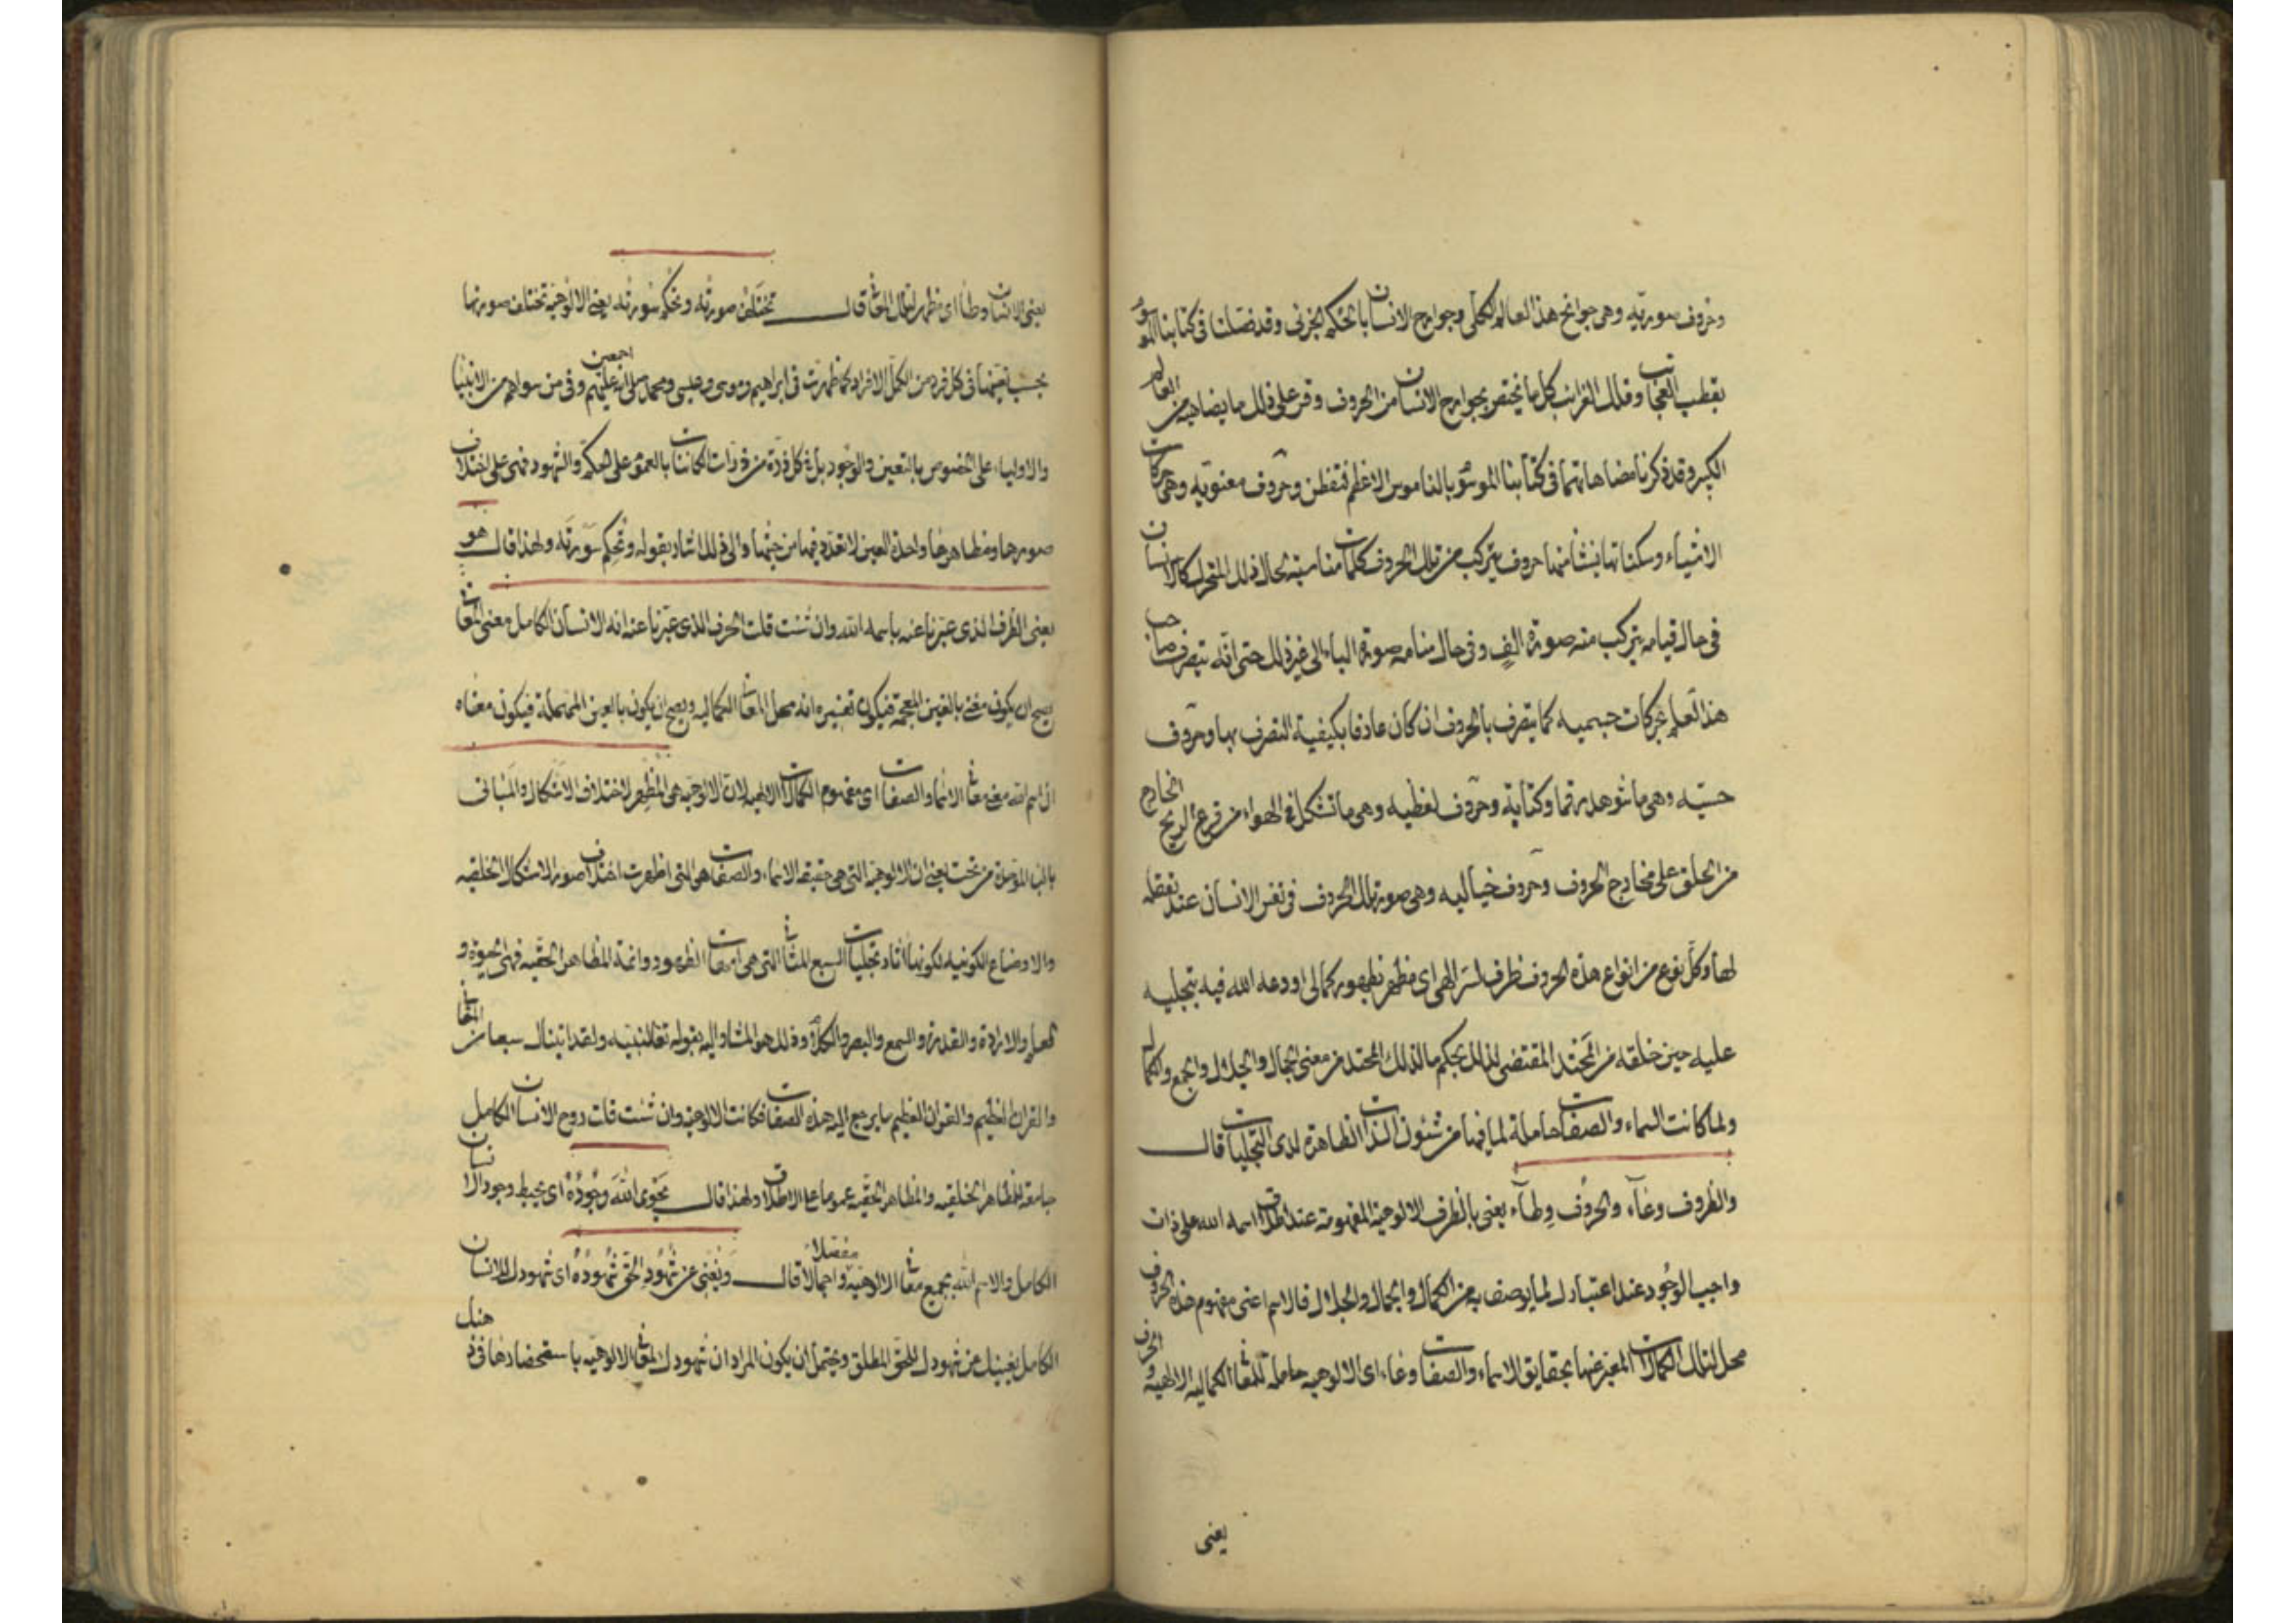 وحروف صوريّه وهي جوانح هذا العالم الكلي وجوارح الانسان بالحكم الجزئي وقد فصلنا في كتابنا الموسوم
بقطب العجائب وفلك الغرائب كل ما يختص بجوارح الانسان من الحروف وقس على ذلك ما يضاهيه من العالم
الكبير وقد ذكرنا مضاهاتهما في كتابنا الموسوم بالناموس الاعظم فتفطن وحروف معنويّه وهي حركات
الاشياء وسكناتها ينشأ منها حروف يتركب من تلك الحروف كلمات مناسبة بحال ذلك المتحرك كالانسان
في حال قيامه يتركب منه صورة الف وفي حال منامه صورة الباء الى غير ذلك حتى انّه يتصرف صاحب
هذا العلم بحركات جسميه كما يتصرف بالحروف ان كان عارفا بكيفية التصرف بها وحروف
حسيّه وهي ما شوهد رقما وكتابة وحروف لفظيه وهي ما تشكل في الهواء من قرع الريح الخارج
من الحلق على مخارج الحروف وحروف خياليه وهي صورة تلك الحروف في نفس الانسان عند تعقله
لها وكل نوع من انواع هذه الحروف ظرف لسر الهي اي مظهر لظهور كمالي اودعه الله فيه بتجليه
عليه حين خلقه من المحتد المقتضى لذلك بحكم ما لذلك المحتد من معنى الجمال والجلال والجمع والكمال
ولما كانت السماء والصفات حاملة لما فيها من شئون الذات الظاهرة لدى التجليات قال
والظروف وعاء والحروف وطاء يعني بالظرف الالوهية المفهومة عند اطلاق اسم الله على ذات
واجب الوجود عند اعتبارك لما يوصف به من الكمال والجمال والجلال فالاسم اعني مفهوم هذه الحروف
محل لتلك الكمالات المعبر عنها بحقايق الاسماء والصفات وعاء اي الالوهيه حامله للمعاني الكماليه الالهيه و الحرف
يعني
يعني الانسان وطاء اي مظهر لتلك المعاني قال تختلف صورته وتحكم سورته يعني الالوهية تختلف صورتها
بحسب تعينها في كل فرد من الكمل الافراد كما ظهرت في ابراهيم وموسى وعيسى ومحمد صلى الله عليهم اجمعين وفي من سواهم من الانبيا
والاولياء على الخصوص بالتعين والوجود بل في كل ذرة من ذرات الكائنات بالعموم على الحكم والشهود فهي على اختلاف
صورها ومظاهرها واحدة العين لا تعدد فيها من حيثها والى ذلك اشار بقوله وتحكم سورته ولهذا قال هو
يعني الظرف الذي عبرنا عنه باسم الله وان شئت قلت الحرف الذي عبّرنا عنه انه الانسان الكامل معنى المعاني
يصح ان يكون مغني بالغين المعجمة فيكون تفسيره انه محل المعاني الكماليه ويصح ان يكون بالعين المهملة فيكون معناه
ان اسم الله معنى معاني الاسماء والصفات اي مفهوم الكمالات الالهيه لان الالوهيه هي المظهر لاختلاف الاشكال والمباني
بالباء الموحدة من تحت يعني ان الالوهية التي هي حقيقة الاسماء والصفات هي التي اظهرت اختلاف صور الاشكال الخلقيه
والاوضاع الكونيه لكونها اثار تجليات السبع المثاني التي هي امهات الظهور وائمة المظاهر الحقّيه فهي الحيوة و
العلم والارادة والقدرة والسمع والبصر والكلام وذلك هو المشار اليه بقوله تعالى لنبيّه ولقد اتيناك سبعا من المثاني
والقران العظيم والقران العظيم ما يرجع اليه هذه الصفات فكانت الالوهية وان شئت قلت روح الانسان الكامل
جامعة للمظاهر الخلقيه والمظاهر الحقيّه عموما على الاطلاق ولهذا قال يحوى اللّه وجُوده اي يحيط وجود الانسان
الكامل والاسم الله بجميع معاني الالوهيّه مفصّلا واجمالا قال ويغني عن شهود الحقّ شهوده اي شهودك للانسان
الكامل يغنيك عن شهودك للحق المطلق ويحتمل ان يكون المراد ان شهودك لمعاني الالوهيه باستحضارها في ذهنك